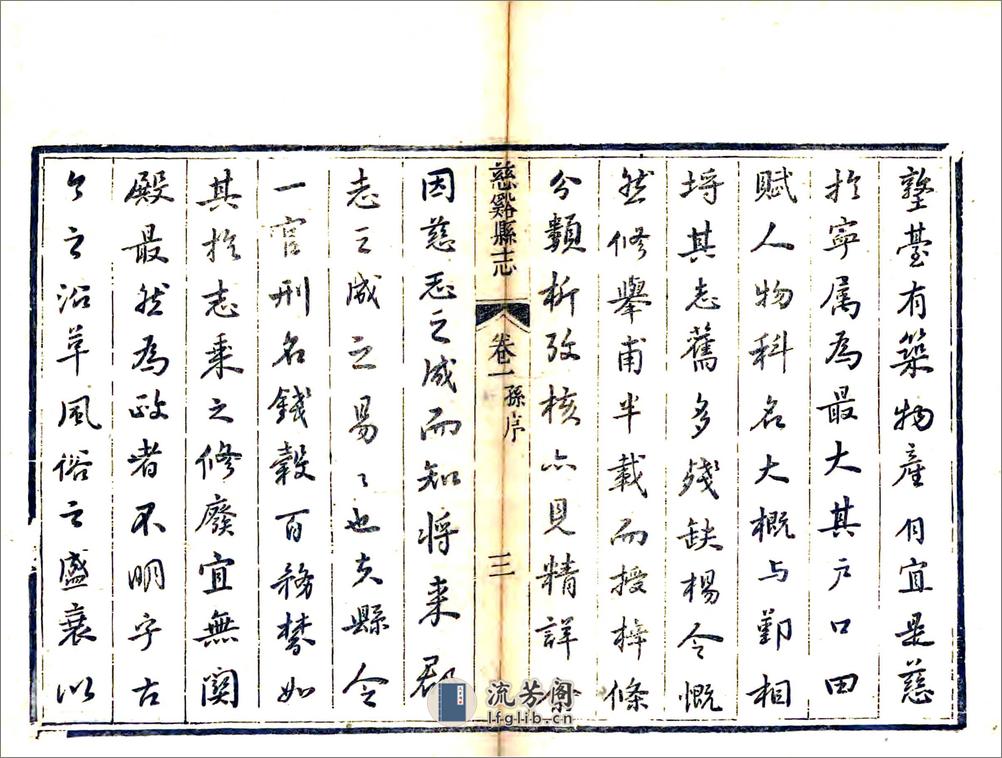 塾臺有築物産何宜是慈
於寧属為最大其户口田
賦人物科名大概与鄞相
埒其志舊多殘缺楊令慨
然修舉甫半載而授梓條
分類析攷核亦見精詳余
慈谿縣志
卷一
孫序
三
因慈志之成而知將来郡
志之成之易易也夫縣令
一官刑名錢穀百務棼如
其於志乗之修廢宜無関
殿最然為政者不明乎古
今之沿革風俗之盛衰以
流芳阁
lfglib.cn